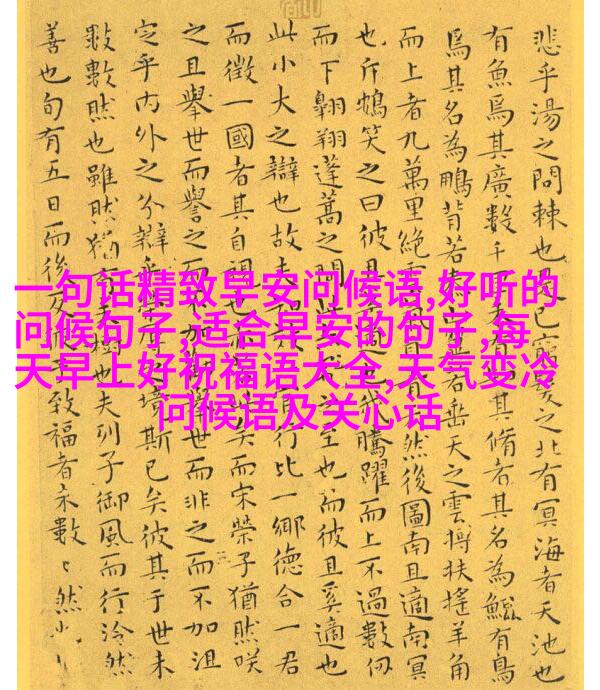 一句话精致早安问候语,好听的
问候句子,适合早安的句子,每
天早上好祝福语大全,天气变冷
问候语及关心话
悲乎湯之問棘也是已窮髮之北有冥海者天池也
有魚焉其廣數千里未有其脩者其名為鯤有鳥
焉其名為鵬背若垂天之雲摶扶搖羊角
而上者九萬里絕雲天然後圖南且適南冥
也斥鴳笑之曰彼且騰躍而上不過數仞
而下翱翔蓬蒿之間此之至也而彼且奚適也
此小大之辯也故夫行比一鄉德合一君
而徵一國者其自視也矣而宋榮子猶然咲
之且舉世而譽之而不加而非之而不加沮
定乎內外之分辯乎境斯已矣彼其于世未
數數然也雖然猶有樹也夫列子御風而行泠然
善也旬有五日而後反致福者未數〻然也